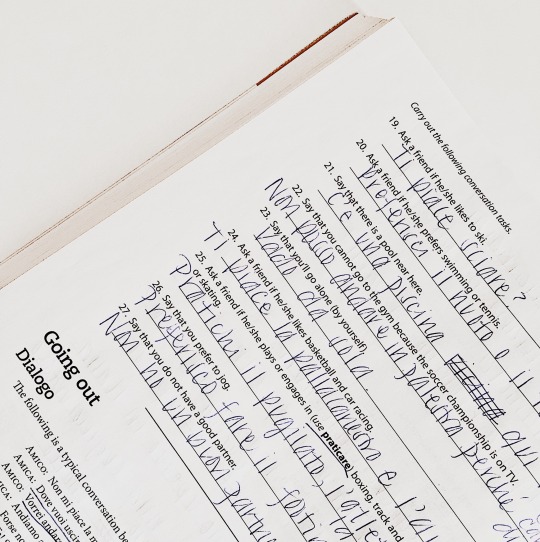 Carry out the following conversation tasks.
19. Ask a friend if he/she likes to ski.
Ti piace sciare?
20. Ask a friend if he/she prefers swimming or tennis.
il nuoto o il
21. Say that there is a pool near here.
C'è una piscina
22. Say that you cannot go to the gym because the soccer championship is on TV.
Non posso andare in palestra perché
23. Say that you'll go alone (by yourself).
Vado da sola.
24. Ask a friend if he/she likes basketball and car racing.
Ti piace la pallacanestro e l'au
25. Ask a friend if he/she plays or engages in (use praticare) boxing, track and
or skating.
Pratichi il pugilato, l'atle
26. Say that you prefer to jog.
Preferisco fare il footin
27. Say that you do not have a good partner.
Non ho un buon partn
Going out
Dialogo
The following is a typical conversation be
AMICO: Non mi piace la m
AMICA: Dove vuoi usci
AMICO: Vorrei andar
AMICA: Andiamo
Forse n